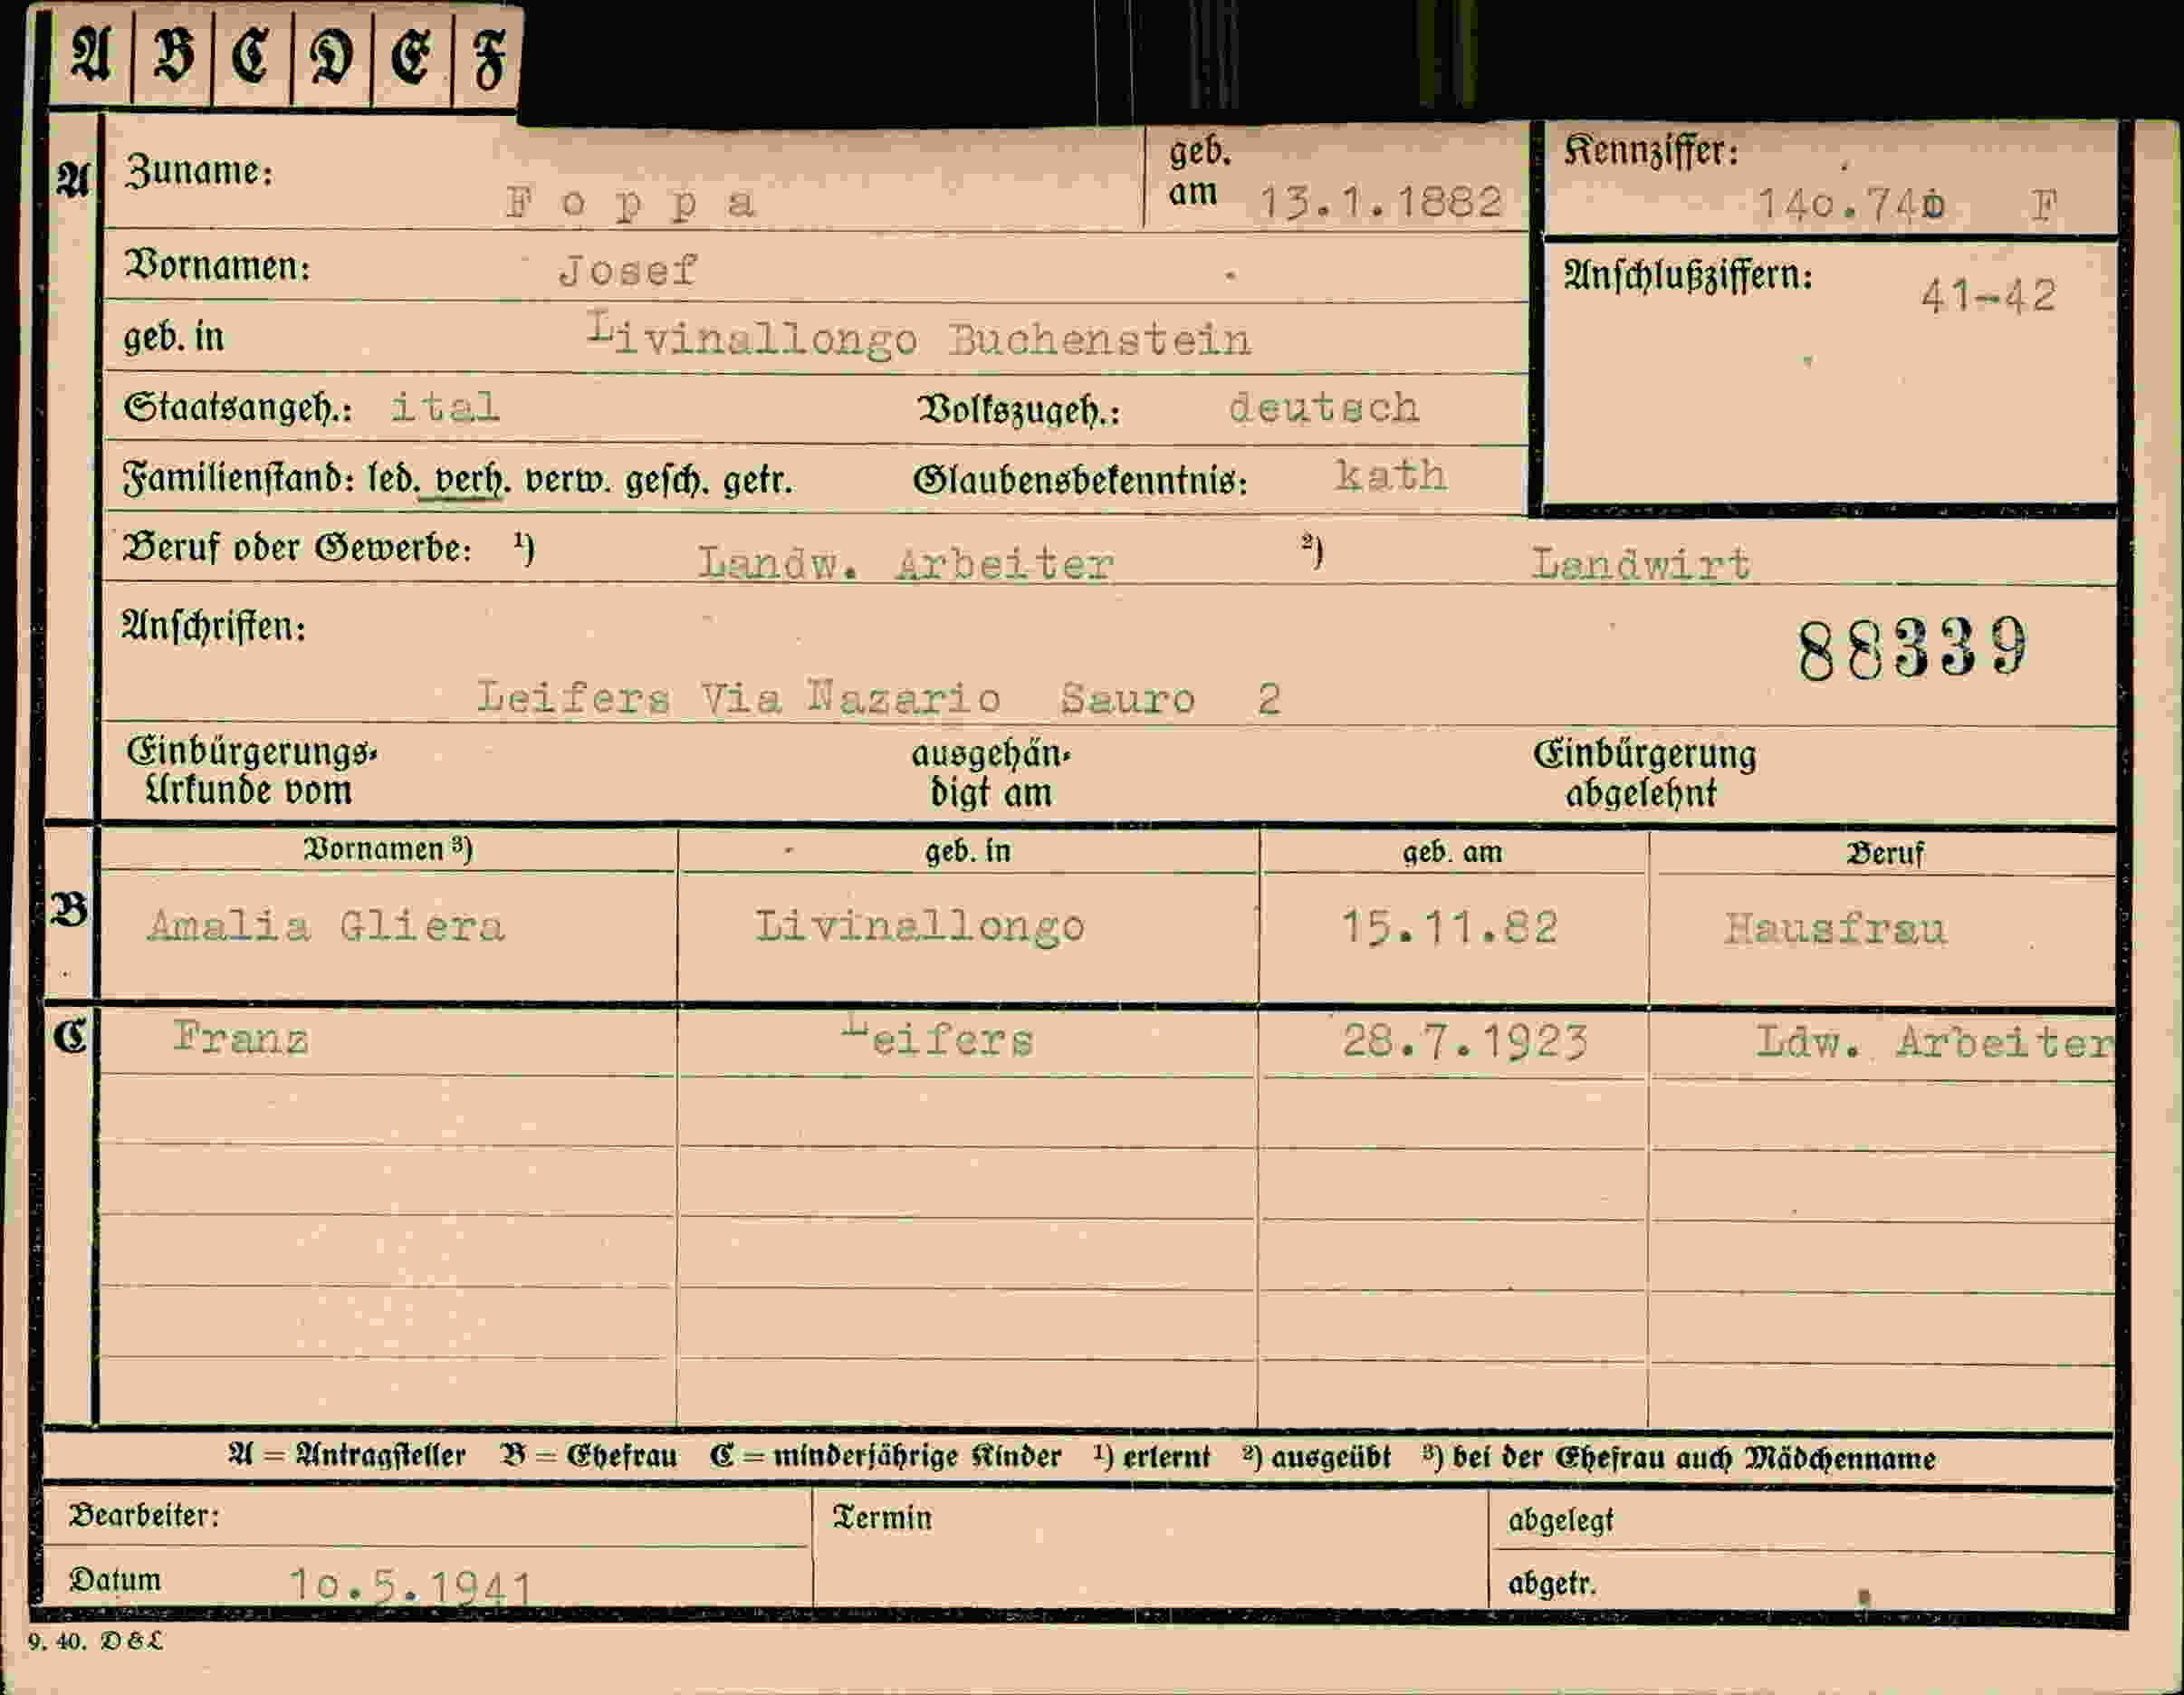 A B C D E F
A Zuname: Foppa geb. am 13.1.1882 Kennziffer: 140.740 F
Vornamen: Josef Anschlußziffern: 41-42
geb. in Livinallongo Buchenstein
Staatsangeh.: ital Volkszugeh.: deutsch
Familienstand: led. verh. verw. gesch. getr. Glaubensbekenntnis: kath
Beruf oder Gewerbe: ¹) Landw. Arbeiter ²) Landwirt
Anschriften: 88339
Leifers Via Nazario Sauro 2
Einbürgerungs- ausgehän- Einbürgerung
Urkunde vom digt am abgelehnt
Vornamen ³) geb. in geb. am Beruf
B Amalia Gliera Livinallongo 15.11.82 Hausfrau
C Franz Leifers 28.7.1923 Ldw. Arbeiter
A = Antragsteller B = Ehefrau C = minderjährige Kinder ¹) erlernt ²) ausgeübt ³) bei der Ehefrau auch Mädchenname
Bearbeiter: Termin abgelegt
Datum 10.5.1941 abgetr.
9. 40. D & L